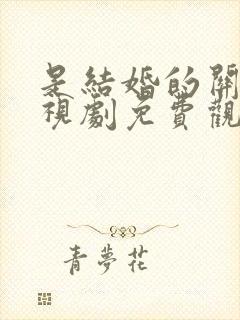 是結婚的開
視劇免費觀
青夢花